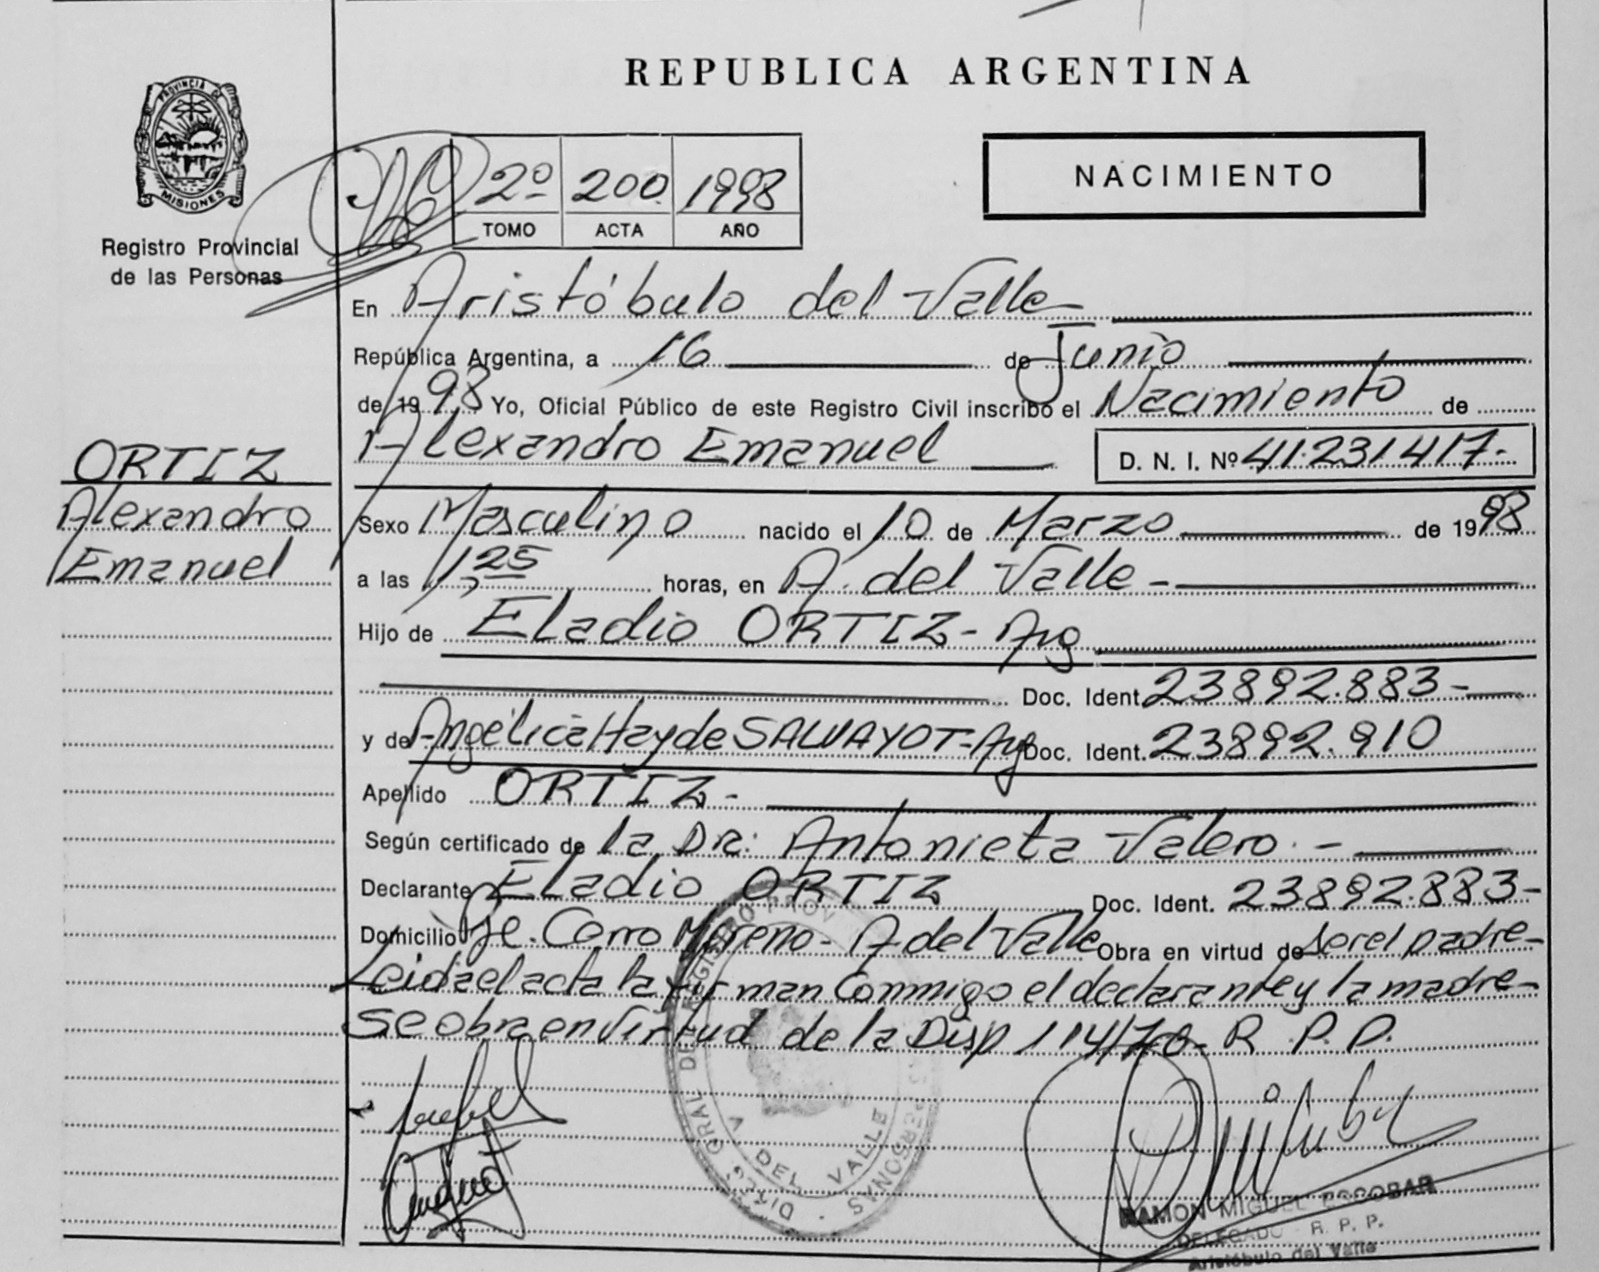 REPUBLICA ARGENTINA
PROVINCIA DE
MISIONES
Registro Provincial
de las Personas
2º 200 1998
TOMO ACTA AÑO
NACIMIENTO
En Aristóbulo del Valle
República Argentina, a 16 de Junio
de 1998 Yo, Oficial Público de este Registro Civil inscribo el Nacimiento de
Alexandro Emanuel D. N. I. Nº 41.231.417-
ORTIZ
Alexandro
Emanuel
Sexo Masculino nacido el 10 de Marzo de 1998
a las 1,25 horas, en A. del Valle -
Hijo de Eladio ORTIZ - Arg
Doc. Ident. 23892.883-
y de Angélica Hayde SALVAYOT - Arg Doc. Ident. 23892.910
Apellido ORTIZ -
Según certificado de la Dra. Antonieta Valero. -
Declarante Eladio ORTIZ Doc. Ident. 23892.883-
Domicilio Je. Cerro Moreno - A del Valle Obra en virtud de ser el padre-
Leida el acta la firman conmigo el declarante y la madre-
se obra en virtud de la Disp 114/78- R. P. P.
DIREC. GRAL DEL REGISTRO PROV PERSONAS
A DEL VALLE
RAMON MIGUEL ESCOBAR
DELEGADO - R. P. P.
Aristóbulo del Valle